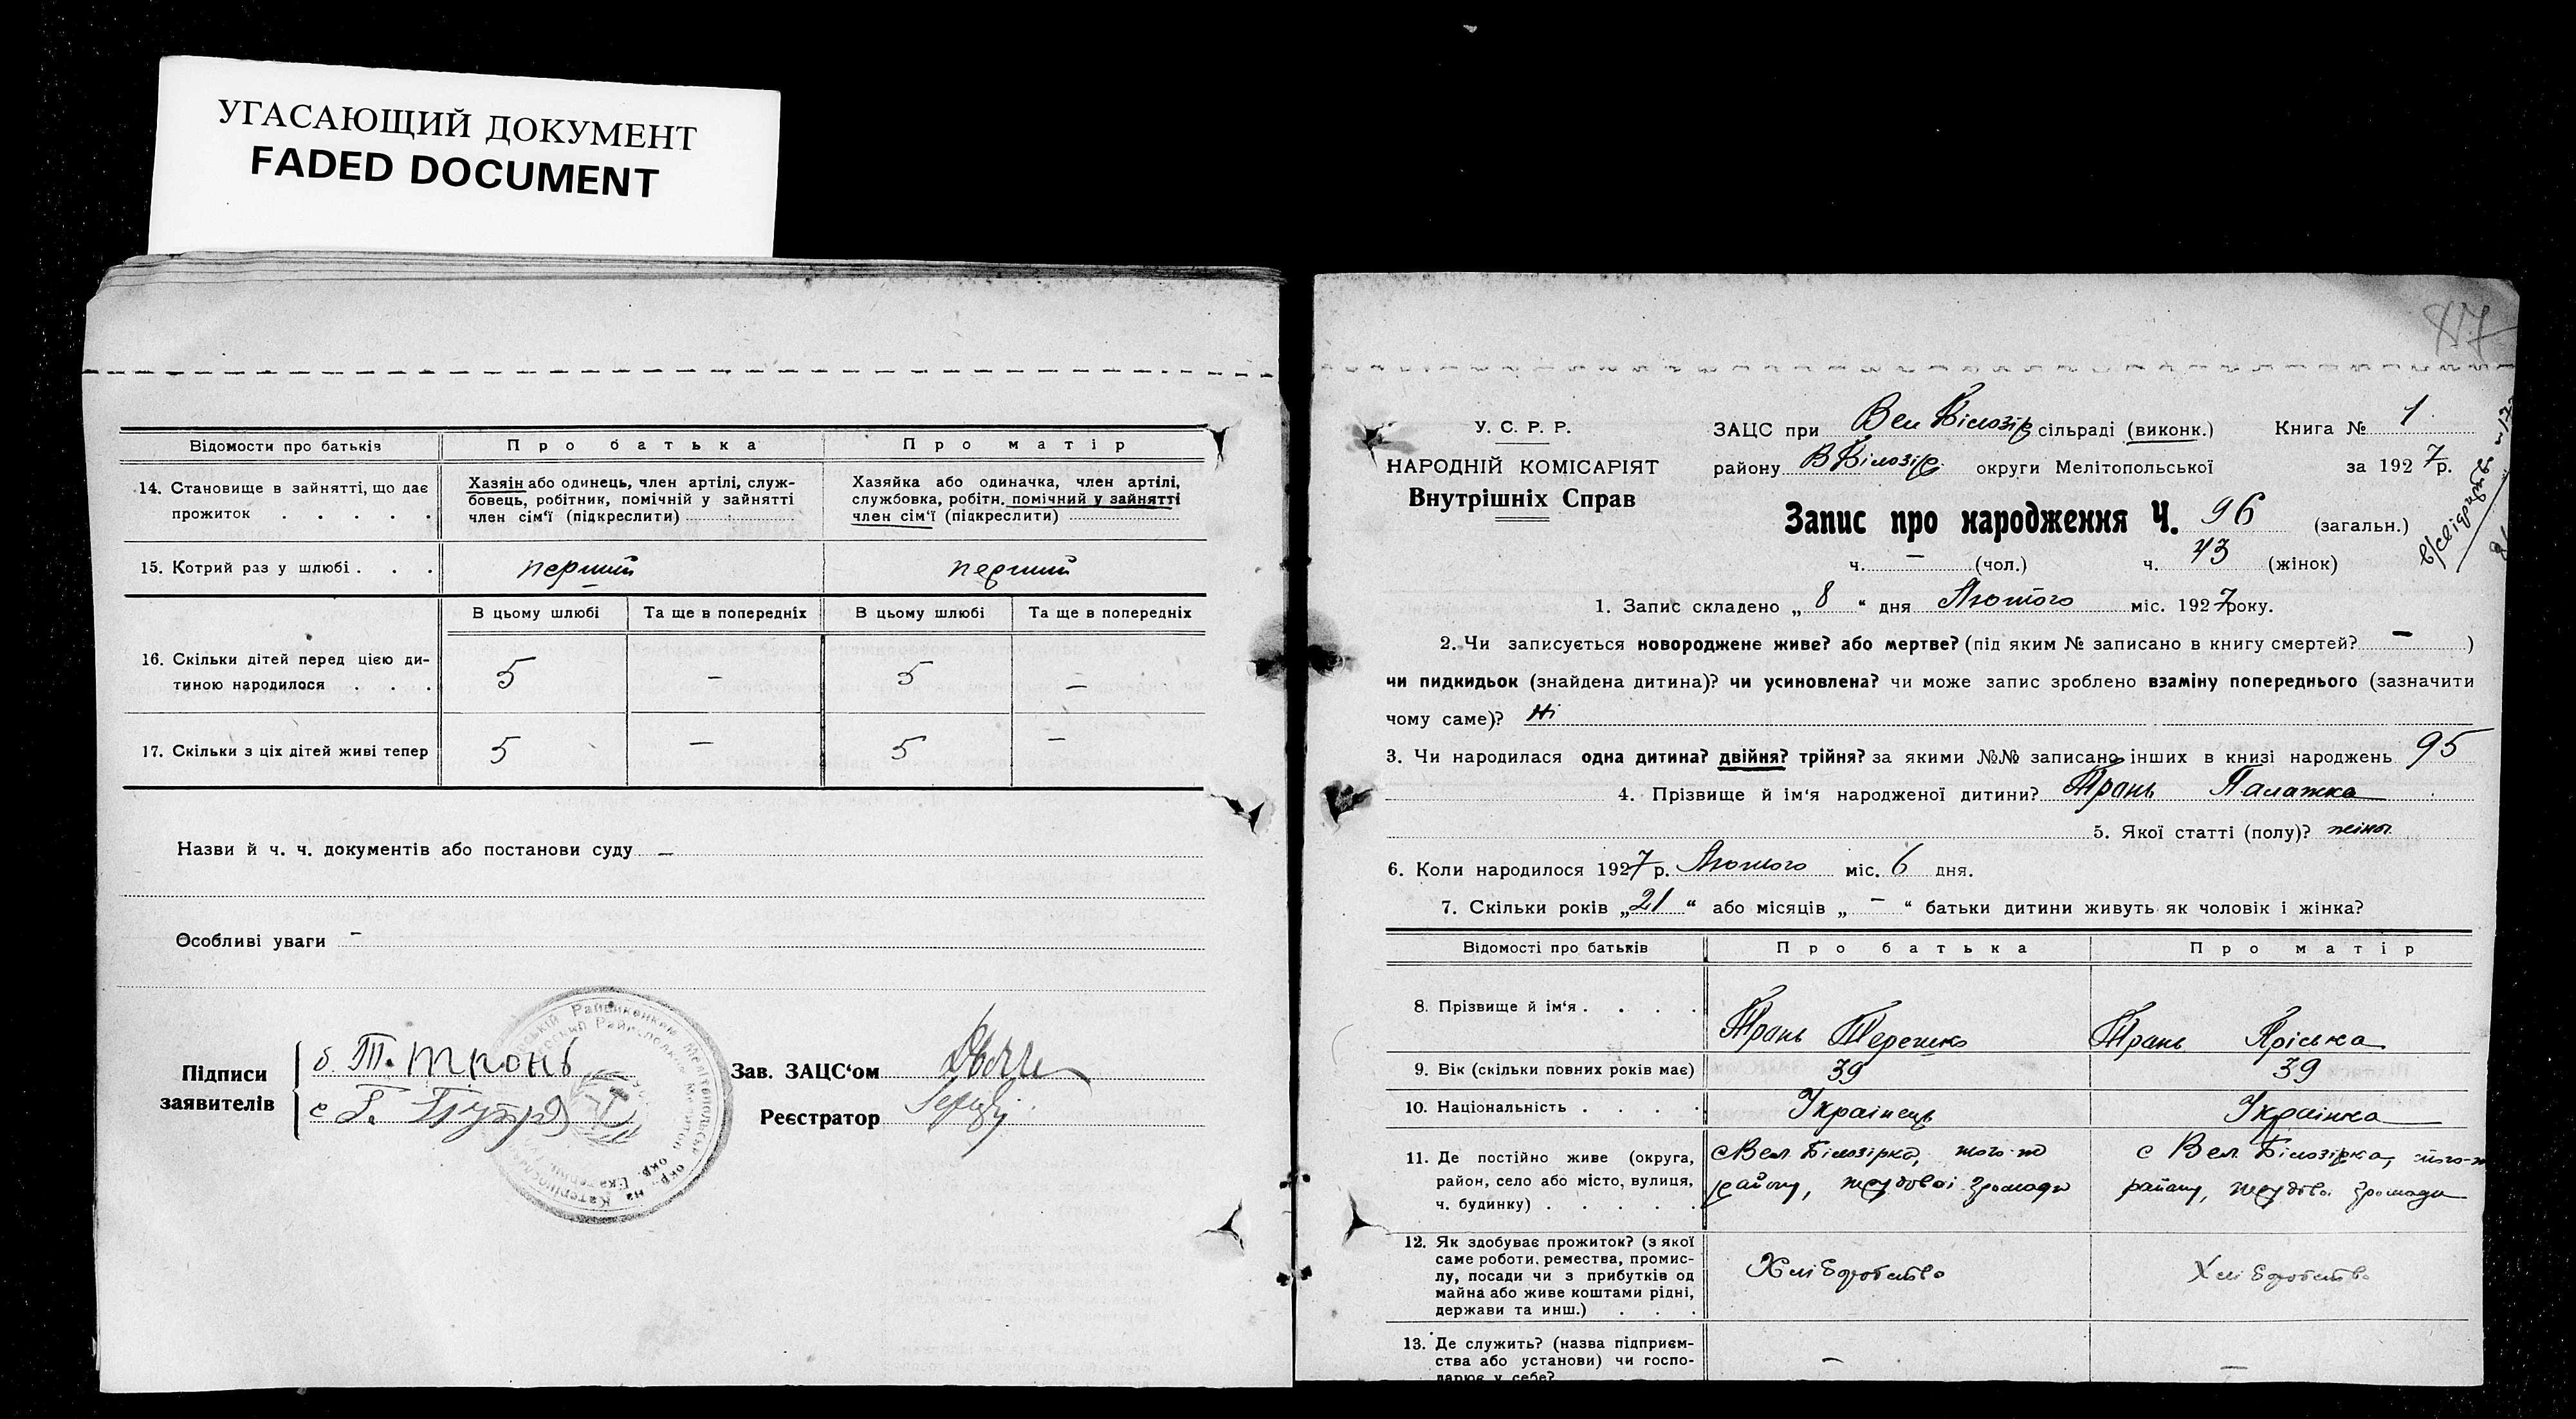 УГАСАЮЩИЙ ДОКУМЕНТ
FADED DOCUMENT
Відомости про батьків
Про батька
Про матір
14. Становище в зайнятті, що дає прожиток . . . . .
Хазяін або одинець, член артілі, служ-
бовець, робітник, помічній у зайнятті
член сім'ї (підкреслити)
Хазяйка або одиначка, член артілі,
службовка, робітн. помічний у зайнятті
член сім'ї (підкреслити)
15. Котрий раз у шлюбі . . . перший перший
В цьому шлюбі Та ще в попередніх В цьому шлюбі Та ще в попередніх
16. Скільки дітей перед цією ди-
тиною народилося . . . 5 – 5 –
17. Скільки з ціх дітей живі тепер 5 – 5 –
Назви й ч. ч. документів або постанови суду –
Особливі уваги –
Підписи
заявителів
б. Т. Тронь
Зав. ЗАЦС'ом
Реєстратор
87
У. С. Р. Р.
НАРОДНІЙ КОМІСАРІЯТ
Внутрішніх Справ
ЗАЦС при Вел Білозір сільраді (виконк.) Книга № 1
району ВБілозір. округи Мелітопольської за 1927 р.
Запис про народження Ч. 96 (загальн.)
ч. – (чол.) ч. 43 (жінок)
1. Запис складено „ 8 “ дня Лютого міс. 1927 року.
2. Чи записується новороджене живе? або мертве? (під яким № записано в книгу смертей? – )
чи пидкидьок (знайдена дитина)? чи усиновлена? чи може запис зроблено взаміну попереднього (зазначити
чому саме)? Ні
3. Чи народилася одна дитина? двійня? трійня? за якими №№ записано інших в книзі народжень 95
4. Прізвище й ім'я народженої дитини? Тронь Палажка
5. Якої статті (полу)? жіноч.
6. Коли народилося 1927 р. Лютого міс. 6 дня.
7. Скільки років „ 21 “ або місяців „ – “ батьки дитини живуть як чоловік і жінка?
Відомості про батьків Про батька Про матір
8. Прізвище й ім'я . . . . Тронь Терешко Тронь Пріська
9. Вік (скільки повних років має) 39 39
10. Національність . . . . Українець Українка
11. Де постійно живе (округа,
район, село або місто, вулиця,
ч. будинку) . . . . .
с Вел. Білозірка, того-ж
району, трудової громади
с Вел. Білозірка, того-ж
району, трудової громади
12. Як здобуває прожиток? (з якої
саме роботи, ремества, промис-
лу, посади чи з прибутків од
майна або живе коштами рідні,
держави та инш.) . . .
Хліборобство
Хліборобство
13. Де служить? (назва підприєм-
ства або установи) чи госпо-
дарює у себе?
– –